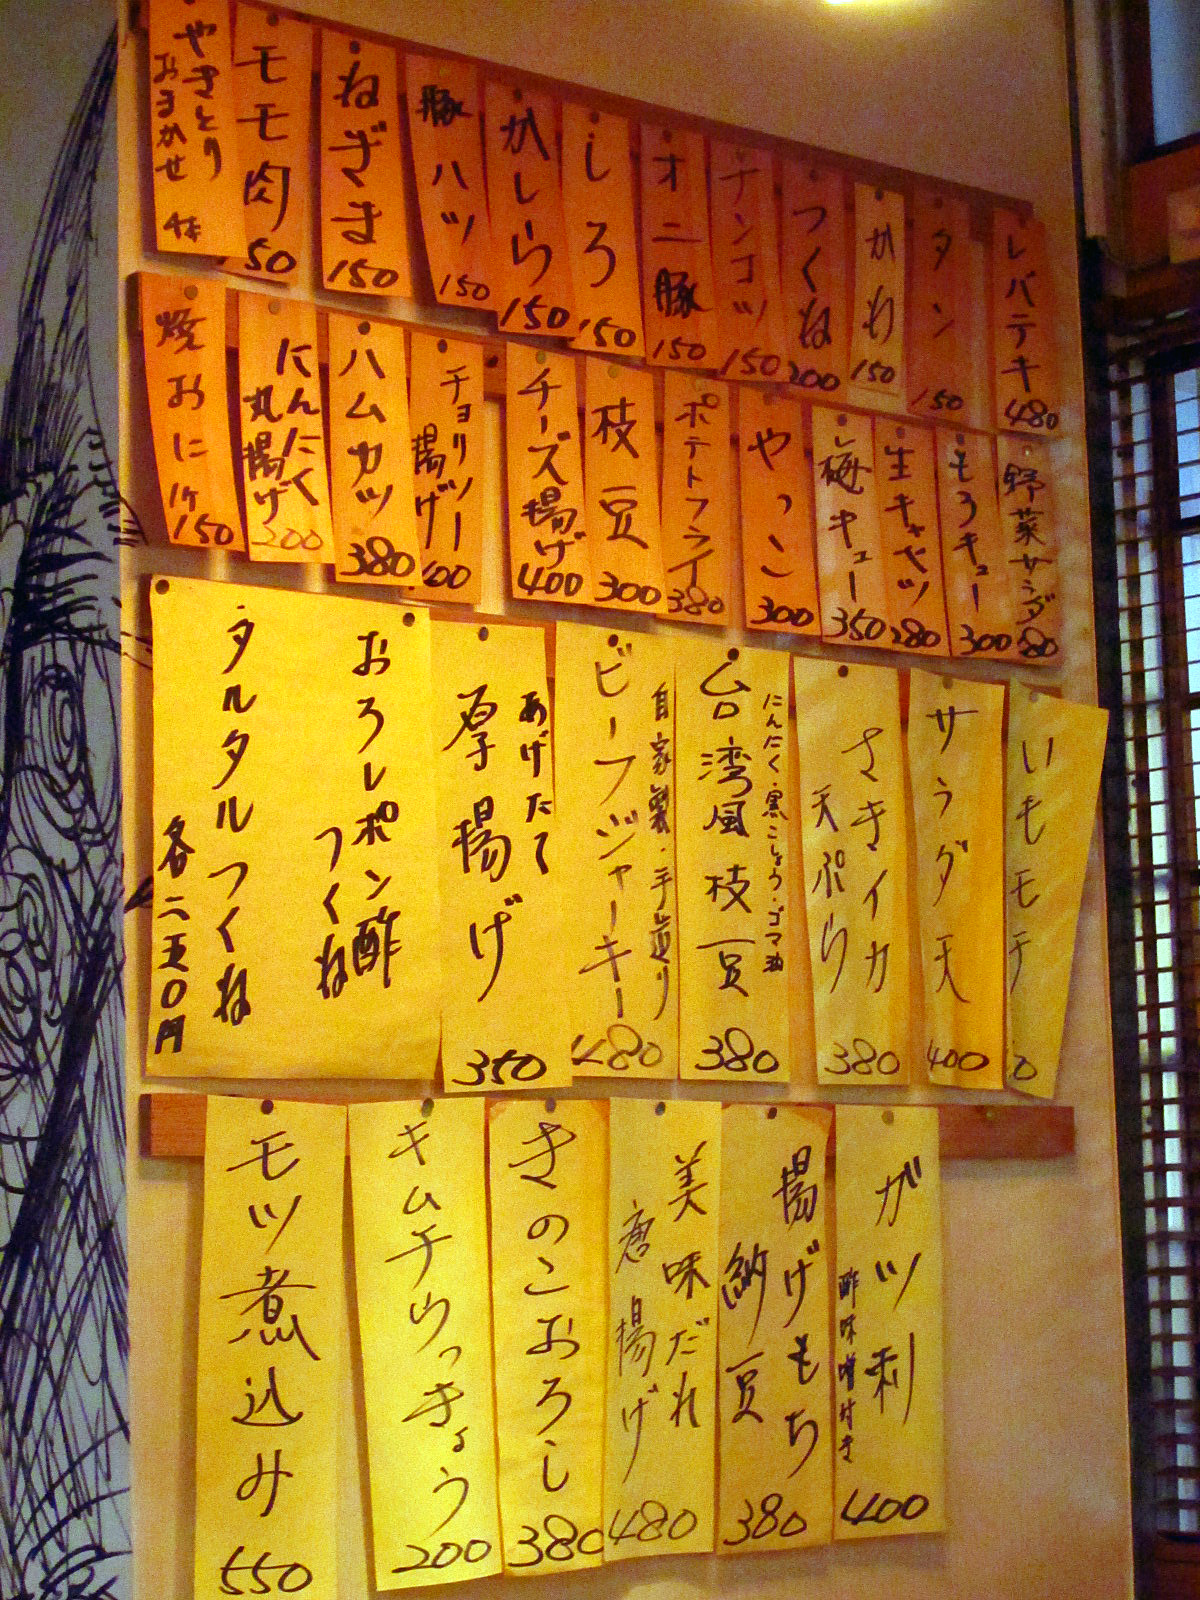 やきとり
おまかせ
モモ肉
150
ねぎま
150
豚ハツ
150
かしら
150
しろ
150
オニ豚
150
ナンコツ
150
つくね
200
かわ
150
タン
150
レバテキ
480
焼おに
1ヶ
150
にんにく
丸揚げ
200
ハムカツ
380
チョリソー
揚げ
400
チーズ揚げ
400
枝豆
300
ポテトフライ
380
やっこ
300
梅キュー
350
生キャベツ
280
もろキュー
300
野菜サラダ
80
おろしポン酢
つくね
タルタルつくね
各二五〇円
あげたて
厚揚げ
350
自家製・手造り
ビーフジャーキー
480
にんにく・黒こしょう・ゴマ油
台湾風枝豆
380
さきイカ
天ぷら
380
サラダ天
400
いもモチ
0
モツ煮込み
550
キムチらっきょう
200
きのこおろし
380
美味だれ
唐揚げ
480
揚げもち
納豆
380
ガツ刺
酢味噌付き
400